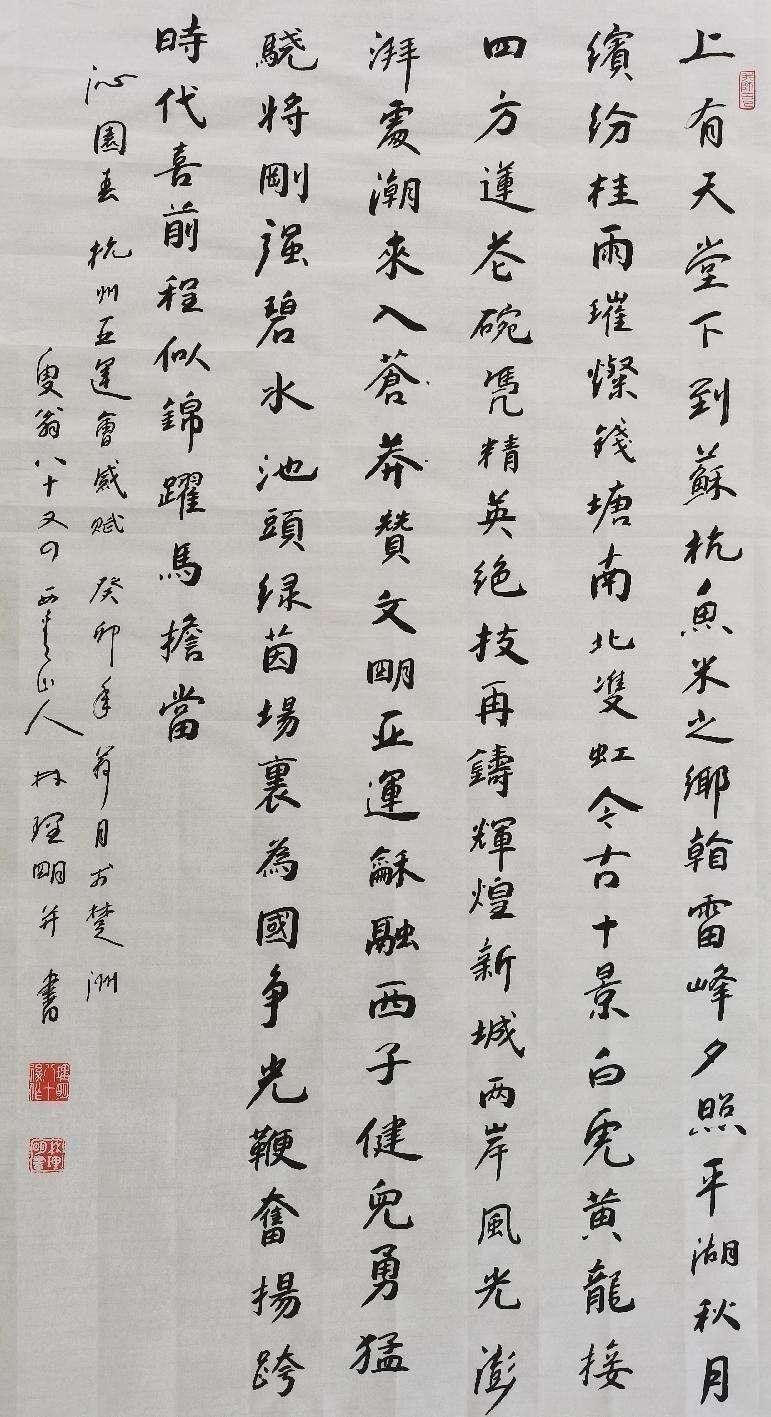 上有天堂下到蘇杭魚米之鄉翰雷峰夕照平湖秋月
繽紛桂雨璀燦錢塘南北雙虹今古十景白虎黄龍接
四方蓮花碗凴精英绝技再鑄輝煌新城两岸風光澎
湃處潮來入蒼莽贊文明亚運龢融西子健兒勇猛
驍將剛强碧水池頭绿茵場裏為國争光鞭奮揚跨
時代喜前程似錦躍馬擔當
沁園春杭州亚運會感赋 癸卯年 月于楚洲
叟翁八十又 山人林理明并書